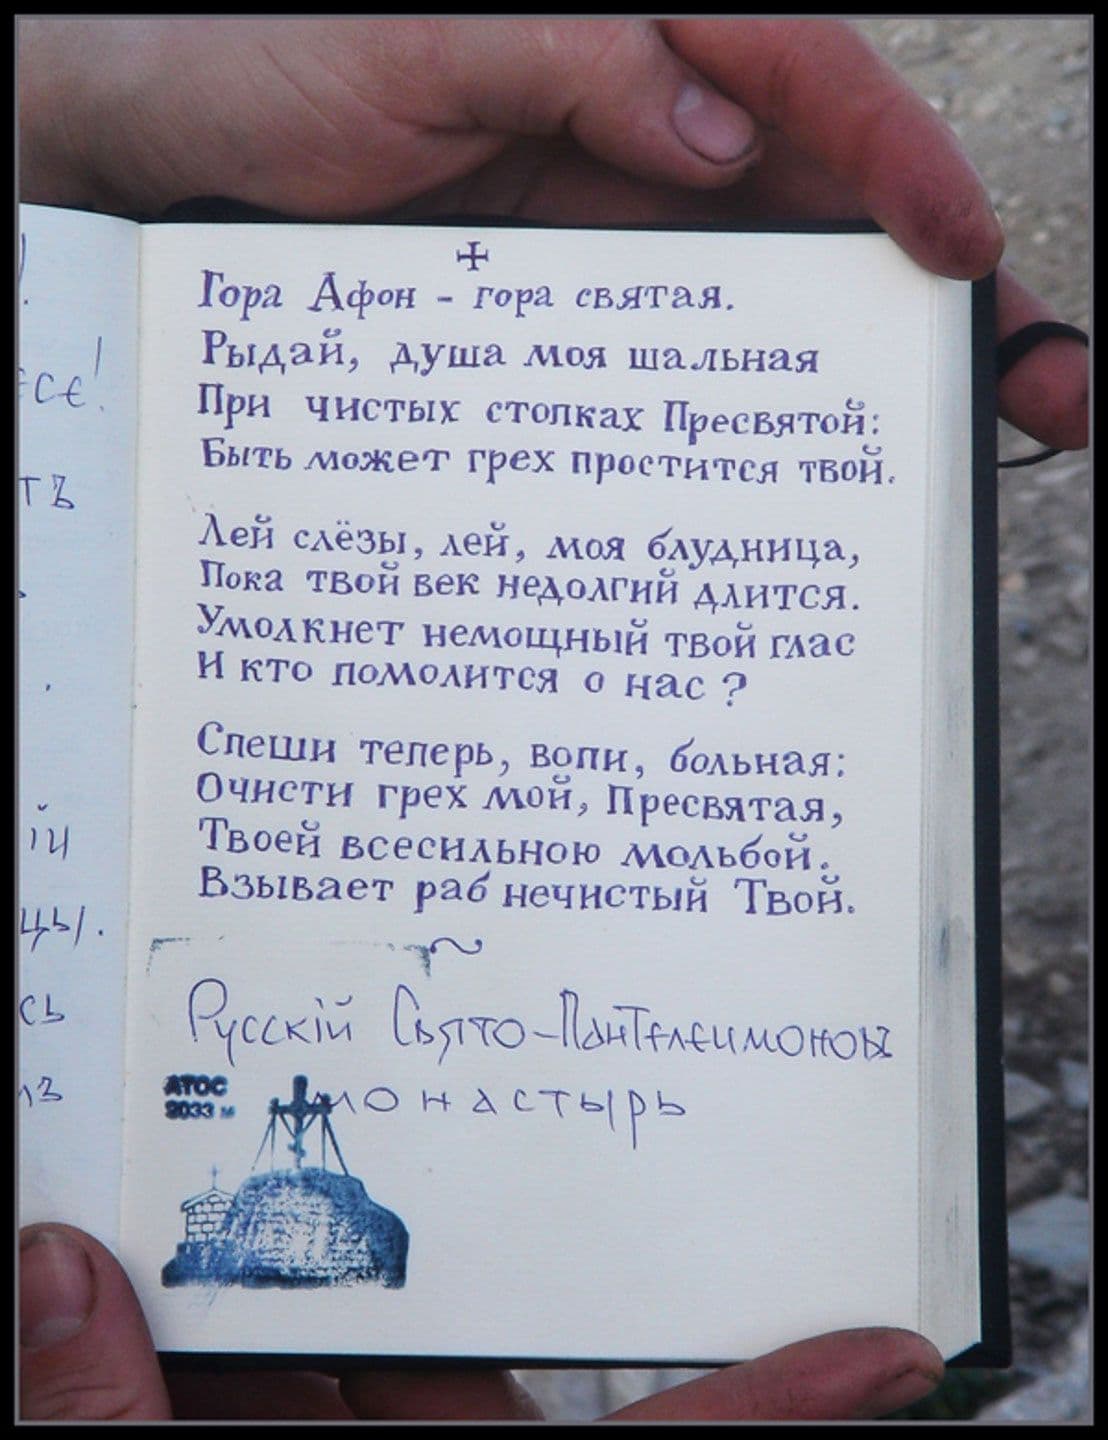 Гора Афон - гора святая.
Рыдай, душа моя шальная
При чистых стопках Пресвятой:
Быть может грех простится твой.
Лей слёзы, лей, моя блудница,
Пока твой век недолгий длится.
Умолкнет немощный твой глас
И кто помолится о нас?
Спеши теперь, вопи, больная:
Очисти грех мой, Пресвятая,
Твоей всесильною мольбой.
Взывает раб нечистый Твой.
Русскій Свято-Пантелеимоновъ
монастырь
АТОС
2033 м
!
есе!
тъ
ій
цы.
сь
лъ